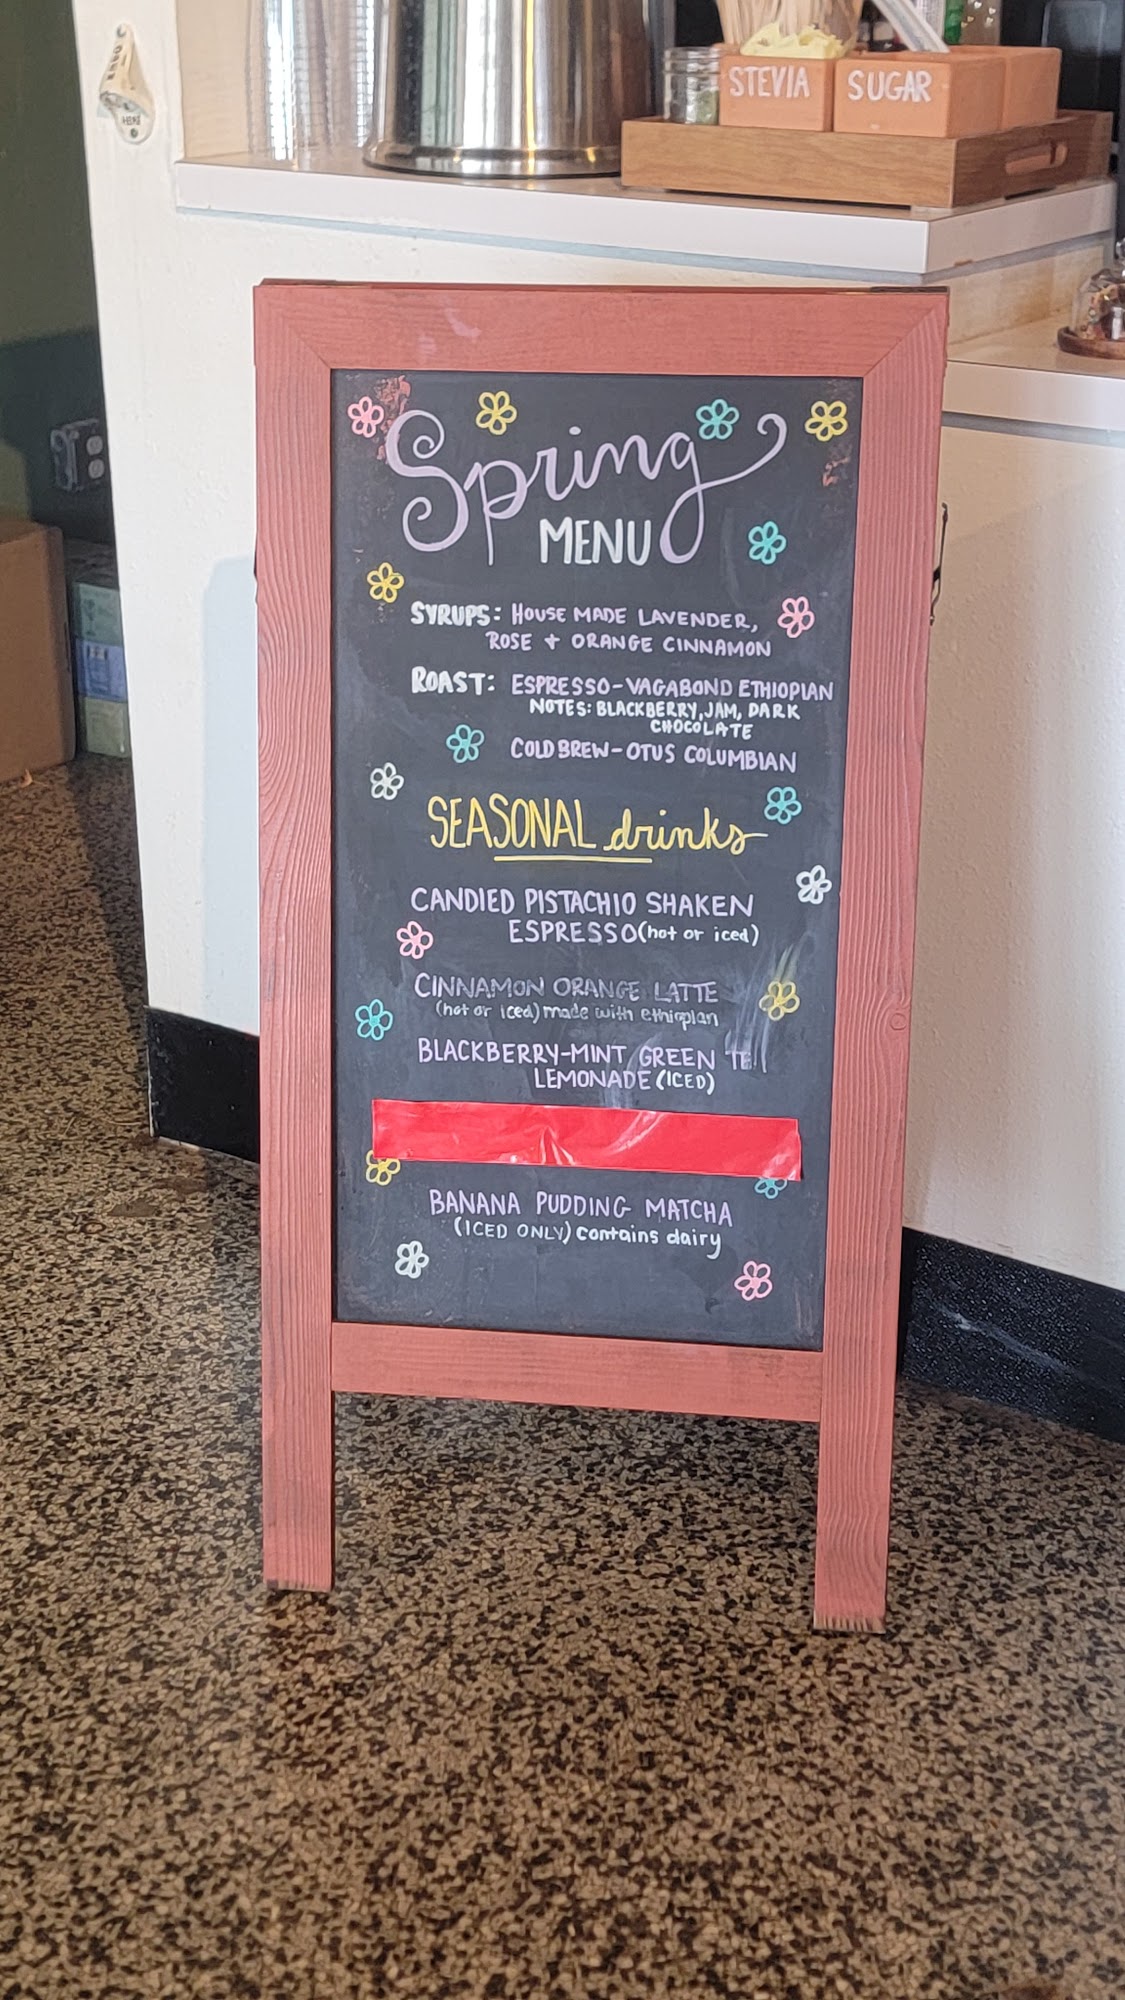 STEVIA
SUGAR
Spring
MENU
SYRUPS: HOUSE MADE LAVENDER,
ROSE + ORANGE CINNAMON
ROAST: ESPRESSO-VAGABOND ETHIOPIAN
NOTES: BLACKBERRY, JAM, DARK
CHOCOLATE
COLD BREW-OTUS COLUMBIAN
SEASONAL drinks
CANDIED PISTACHIO SHAKEN
ESPRESSO (hot or iced)
CINNAMON ORANGE LATTE
(hot or iced) made with ethiopian
BLACKBERRY-MINT GREEN
LEMONADE (ICED)
BANANA PUDDING MATCHA
(ICED ONLY) contains dairy